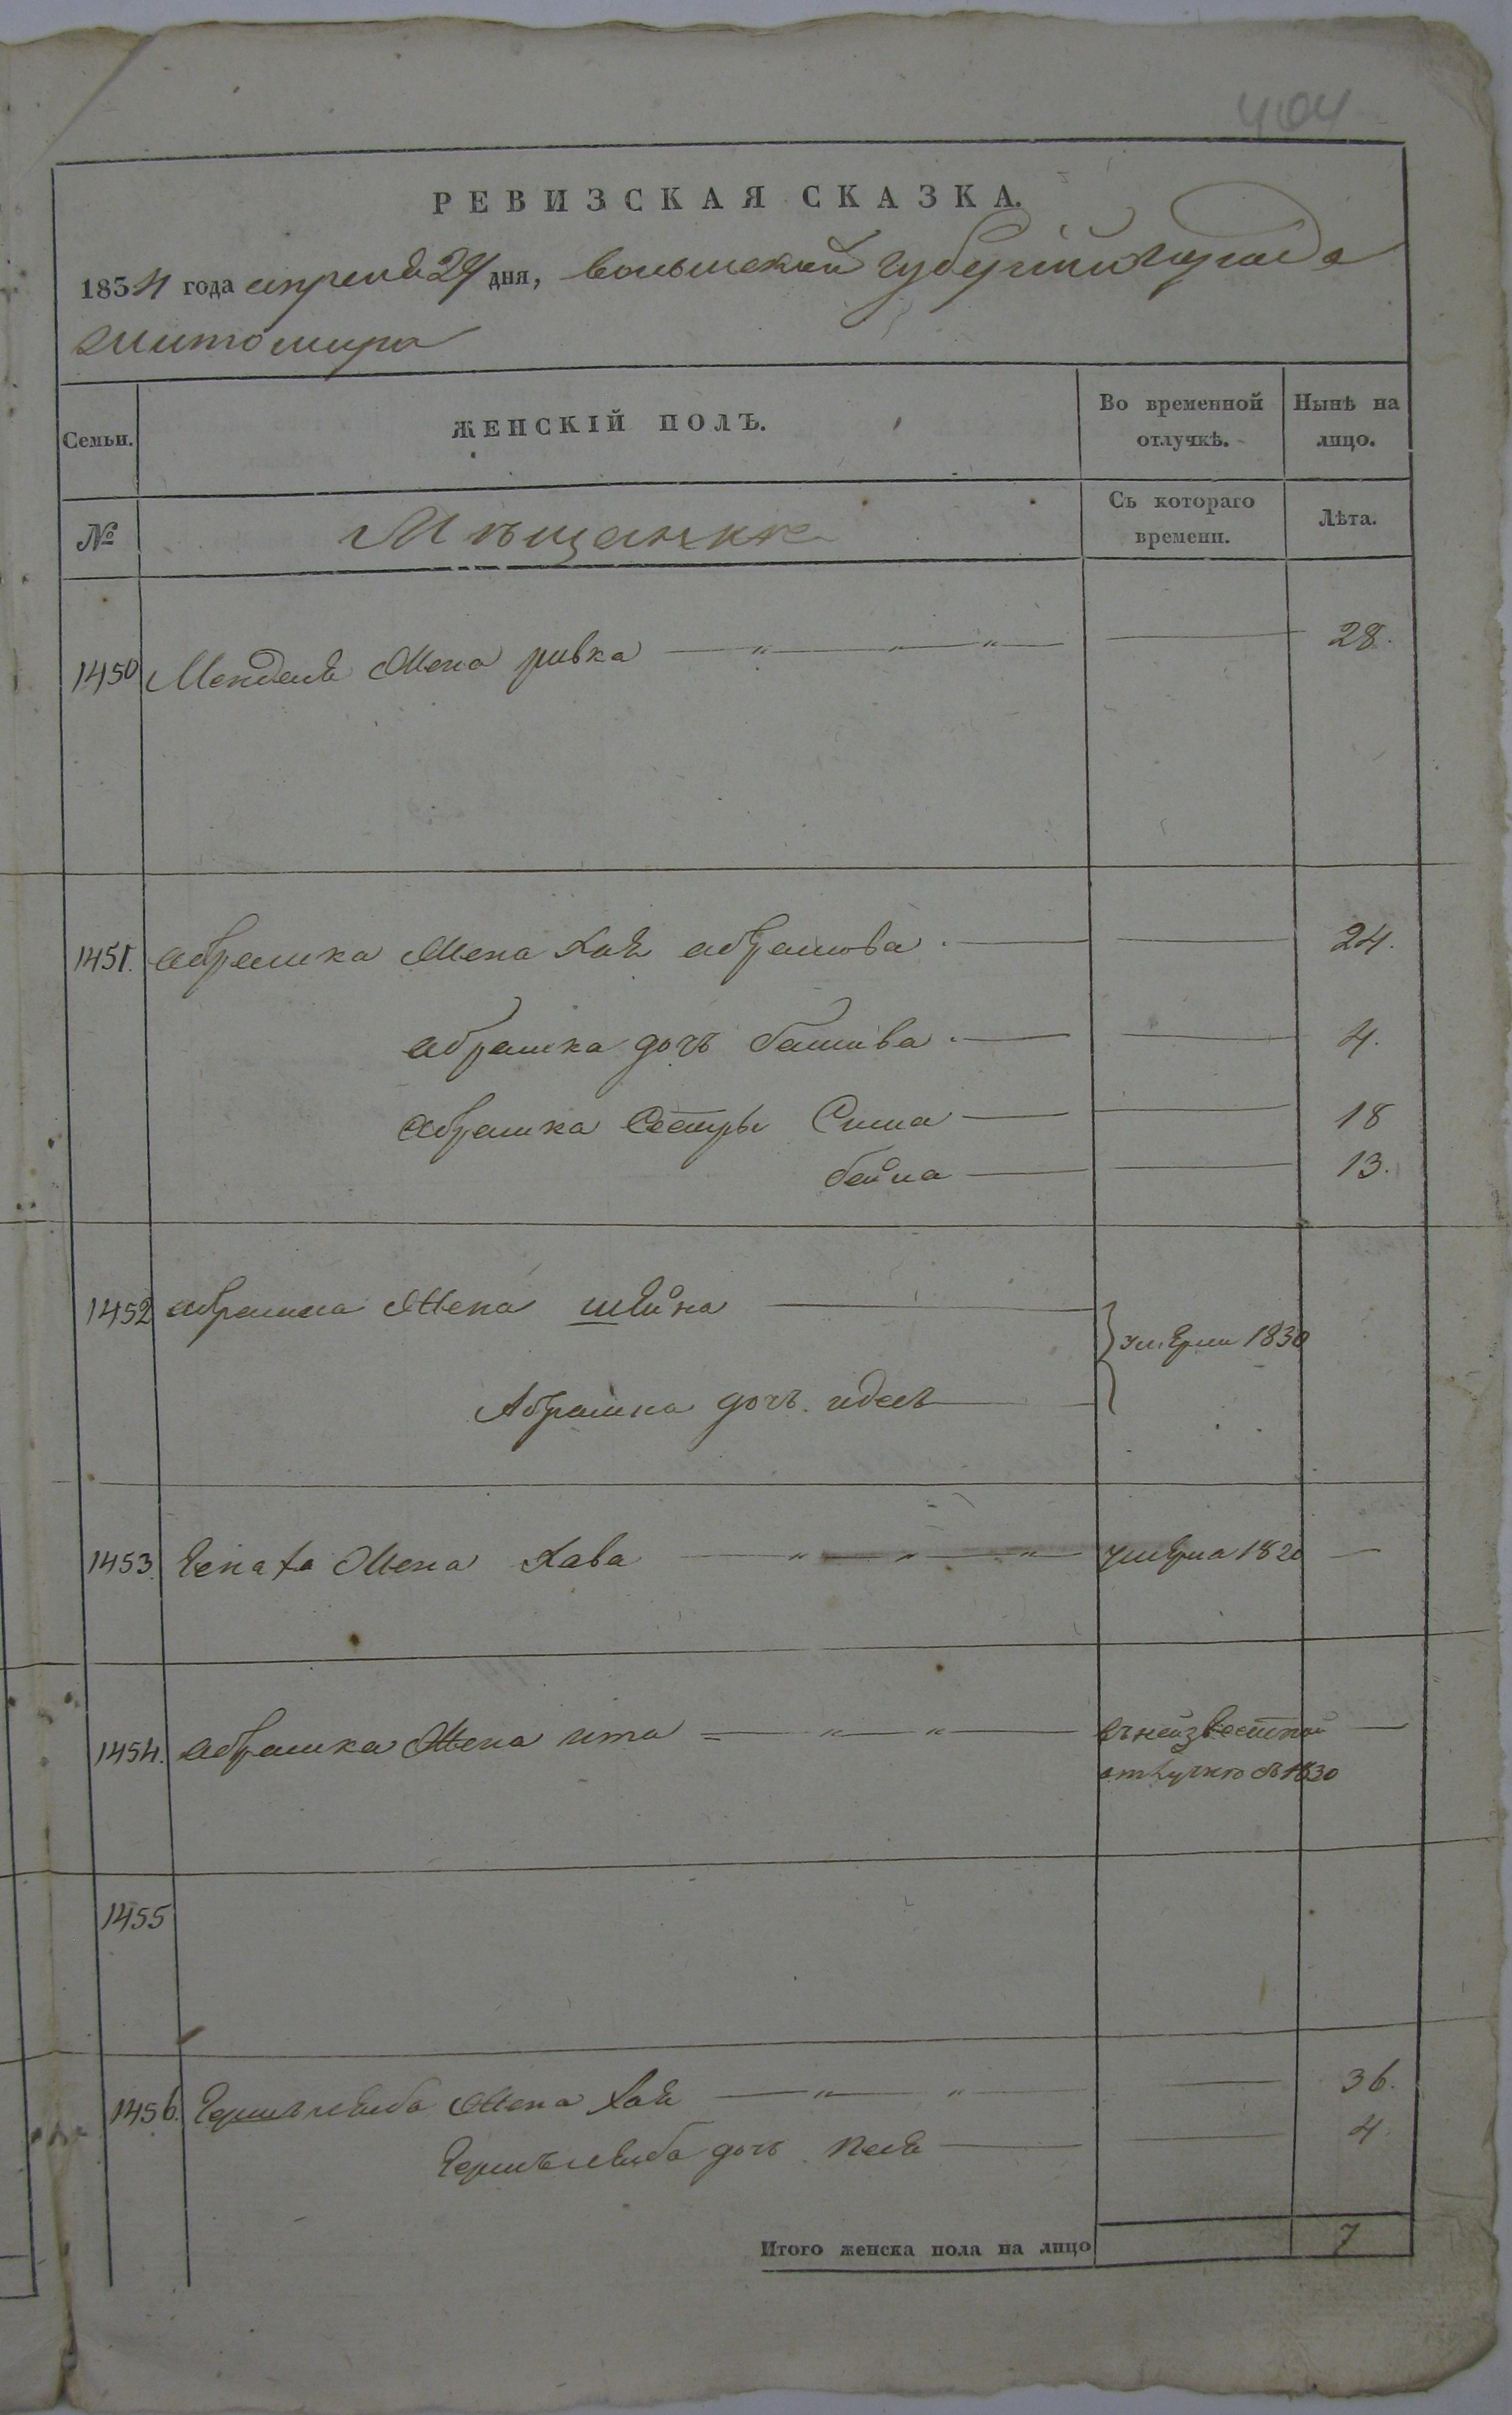 404
РЕВИЗСКАЯ СКАЗКА.
1834 года апреля 24 дня, волынской губернии города
житомира
Семьи. ЖЕНСКІЙ ПОЛЪ. Во временной отлучкѣ. Нынѣ на лицо.
№ Мѣщанкѣ Съ котораго времени. Лѣта.
1450 Менделя Жена ривка 28.
1451. абрамка Жена Хая абрамова 24.
абрамка дочъ башива 4.
абрамка Сестры Сима 18
бейла 13.
1452 абрамка Жена шейна умерли 1830
Абрамка дочъ идесъ
1453. Жена Хава умерла 1820 —
1454. абрамка Жена ита въ неизвестной —
отлучке съ 1830
1455
1456. Гершълейба Жена Хая 36.
Гершълейба дочъ песя 4.
Итого женска пола на лицо 7